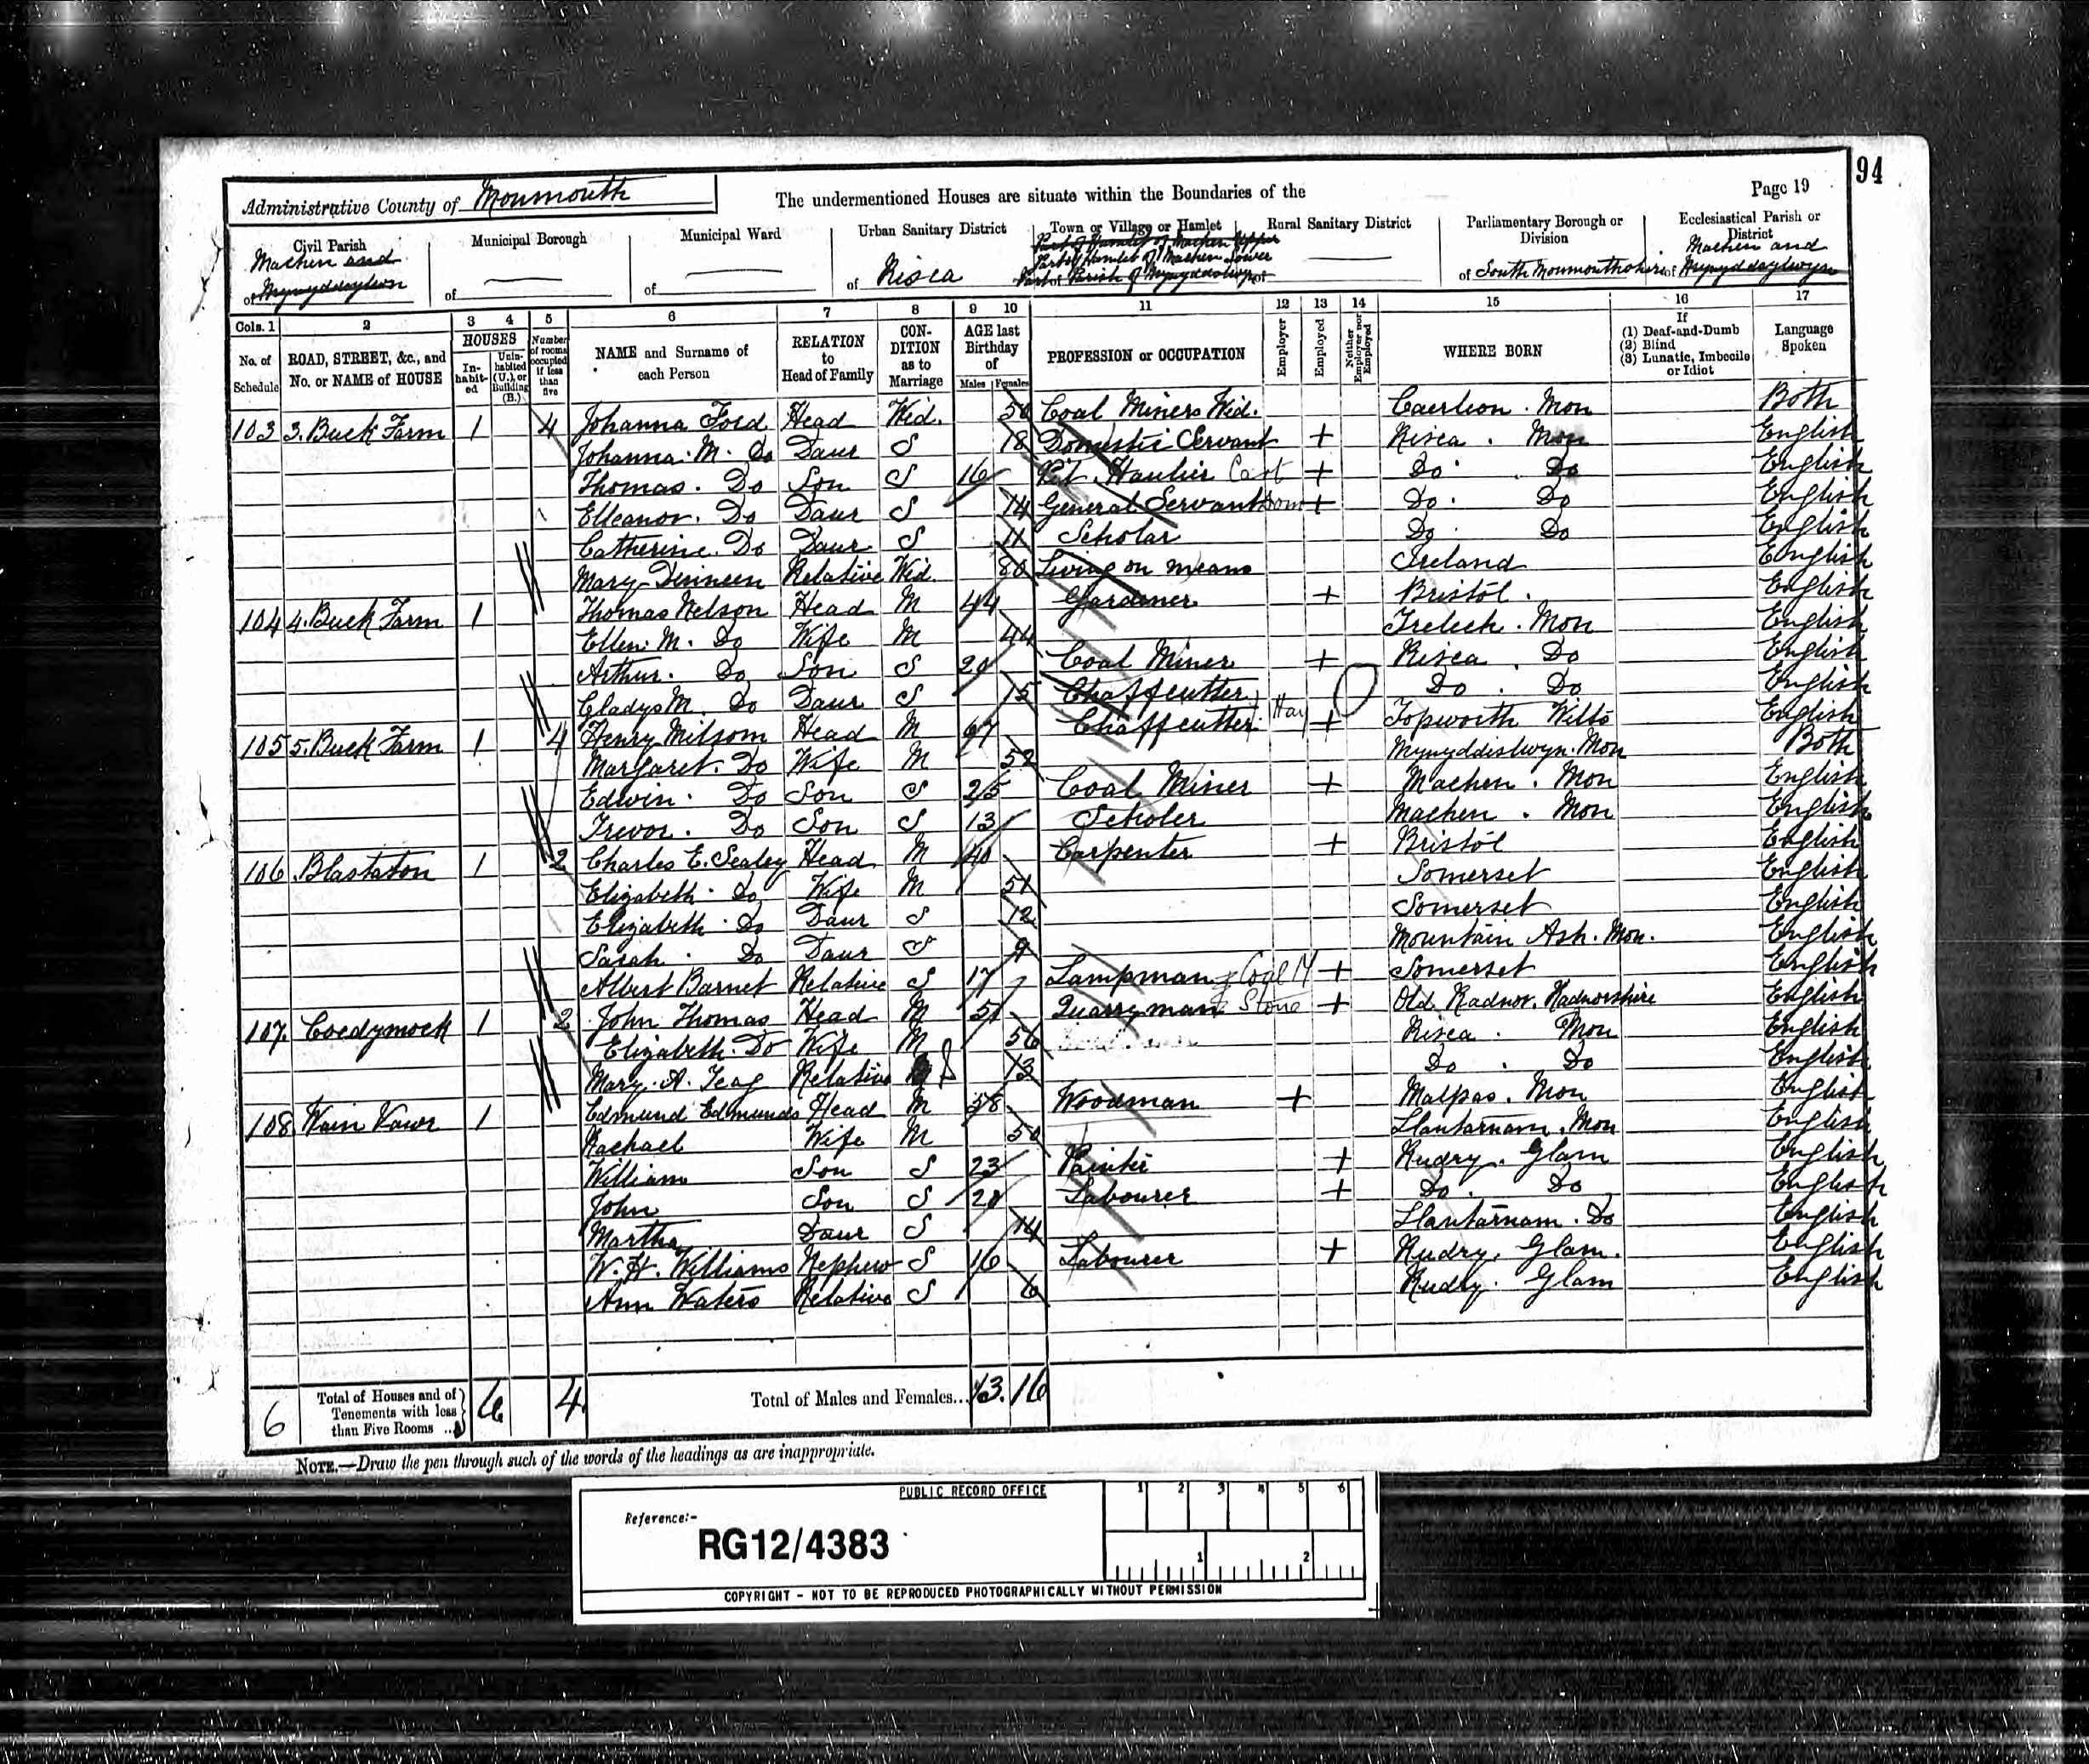 94
Administrative County of Monmouth
The undermentioned Houses are situate within the Boundaries of the
Page 19
Civil Parish
Machen and
of Mynyddyslwyn
Municipal Borough
of
Municipal Ward
of
Urban Sanitary District
of Risca
Town or Village or Hamlet
Part of Hamlet of Machen Upper
Part of Hamlet of Machen Lower
Part of Parish of Mynyddislwyn
Rural Sanitary District
of
Parliamentary Borough or Division
of South Monmouthshire
Ecclesiastical Parish or District
Machen and
of Mynyddyslwyn
Cols. 1 2 3 4 5 6 7 8 9 10 11 12 13 14 15 16 17
No. of Schedule
ROAD, STREET, &c., and No. or NAME of HOUSE
HOUSES
In-habit-ed
Unin-habited (U.), or Building (B.)
Number of rooms occupied if less than five
NAME and Surname of each Person
RELATION to Head of Family
CON-DITION as to Marriage
AGE last Birthday of
Males Females
PROFESSION or OCCUPATION
Employer
Employed
Neither Employer nor Employed
WHERE BORN
If
(1) Deaf-and-Dumb
(2) Blind
(3) Lunatic, Imbecile or Idiot
Language Spoken
103 3. Buck Farm 1 4 Johanna Ford Head Wid. 50 Coal Miners Wid. Caerleon . Mon Both
Johanna. M. Do Daur S 18 Domestic Servant + Risca . Mon English
Thomas. Do Son S 16 Pit Haulier Cart + Do . Do English
Elleanor. Do Daur S 14 General Servant Dom + Do . Do English
Catherine. Do Daur S 11 Scholar Do . Do English
Mary Dinneen Relative Wid. 80 Living on means Ireland English
104 4. Buck Farm 1 Thomas Nelson Head M 44 Gardener + Bristol . English
Ellen M. Do Wife M 44 Trelech . Mon English
Arthur. Do Son S 20 Coal Miner + Risca . Do English
Gladys M. Do Daur S 15 Chaffcutter Do . Do English
105 5. Buck Farm 1 4 Henry Milsom Head M 67 Chaffcutter Hay + Topworth Wilts English
Margaret. Do Wife M 52 Mynyddislwyn. Mon Both
Edwin. Do Son S 25 Coal Miner + Machen . Mon English
Trevor. Do Son S 13 Scholer Machen . Mon English
106 Blastaton 1 2 Charles E. Sealey Head M 40 Carpenter + Bristol English
Elizabeth. Do Wife M 51 Somerset English
Elizabeth. Do Daur S 12 Somerset English
Sarah. Do Daur S 9 Mountain Ash. Mon. English
Albert Barnet Relative S 17 Lampman Coal M + Somerset English
107. Coedymock 1 2 John Thomas Head M 51 Quarryman Stone + Old Radnor. Radnorshire English
Elizabeth. Do Wife M 56 Risca . Mon English
Mary. A. Teag Relative S 13 Do . Do English
108 Wain Vawr 1 Edmund Edmunds Head M 58 Woodman + Malpas. Mon English
Rachael Wife M 50 Llantarnam. Mon English
William Son S 23 Painter + Rudry. Glam English
John Son S 20 Labourer + Do . Do English
Martha Daur S 14 Llantarnam. Do English
W. H. Williams Nephew S 16 Labourer + Rudry. Glam. English
Ann Waters Relative S 6 Rudry. Glam English
6
Total of Houses and of Tenements with less than Five Rooms
6 4
Total of Males and Females...
13. 16
NOTE.—Draw the pen through such of the words of the headings as are inappropriate.
PUBLIC RECORD OFFICE
Reference:-
RG12/4383
1 2 3 4 5 6
1 2
COPYRIGHT - NOT TO BE REPRODUCED PHOTOGRAPHICALLY WITHOUT PERMISSION